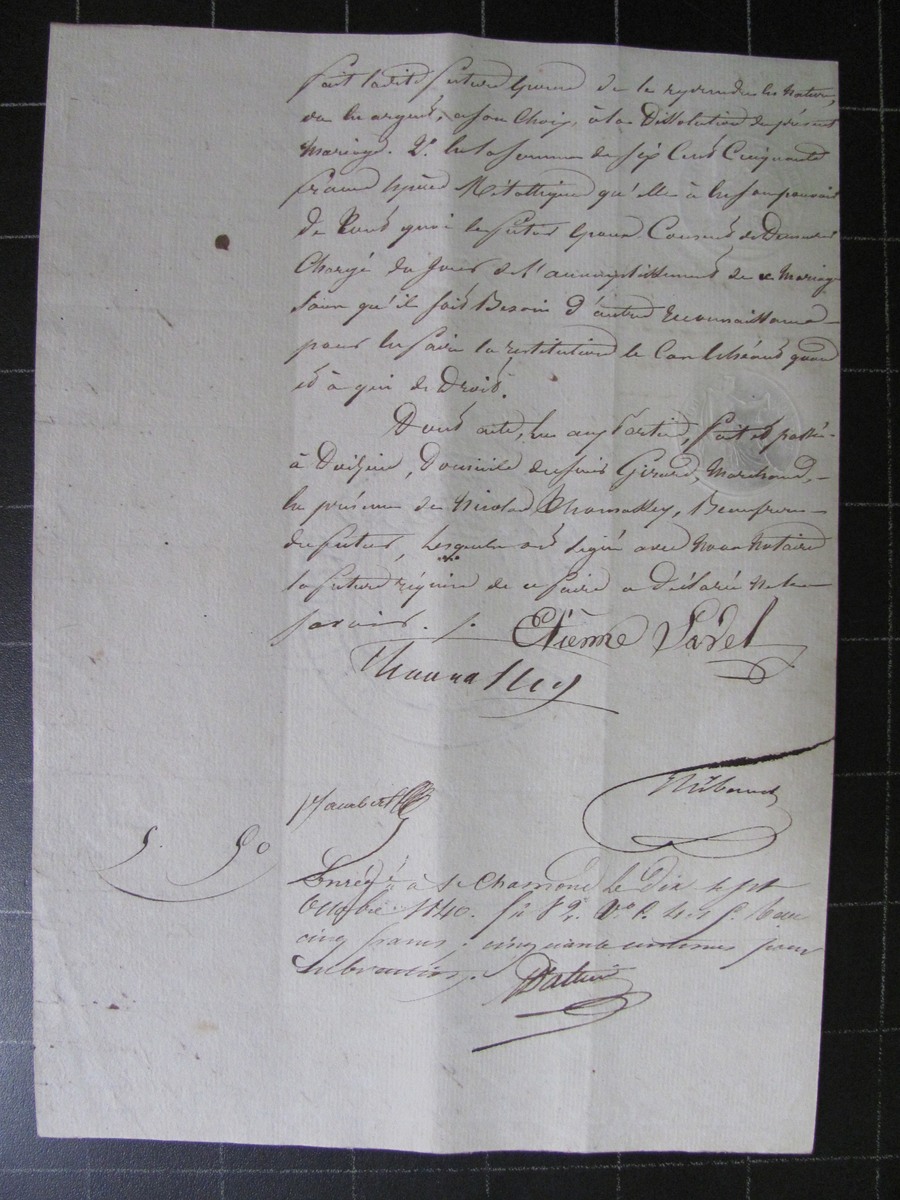 fait ladite future épouse de le reprendre en nature,
ou en argent, à son choix, à la Dissolution du présent
Mariage. 2°. en la somme de six Cent Cinquante
francs Espèces Métalliques qu'elle a en son pouvoir
de tout quoi le futur époux Consent de Demeurer
Chargé du Jour de l'accomplissement de ce Mariage
sans qu'il soit Besoin d'autre reconnaissance
pour en faire la restitution le Cas échéant quand
et à qui de Droit.
Dont acte, fait et passé
à Doizieu, Domicile du Girard, Marchand,
En présence de Nicolas Beaufrère
du futur, lesquels ont signé avec Nous Notaire
la future requise de ce faire a Déclaré ne le
savoir. /.
Etienne
5. 50
Enregé à St Chamond le Dix sept
Octobre 1840. fo 82. Vo C. Reçu
cinq francs, cinquante centimes pour